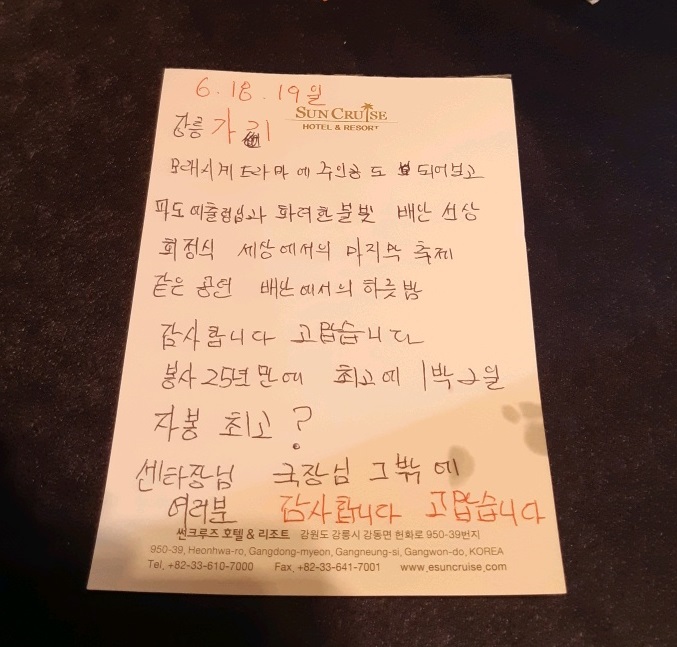 6.18.19일
SUN CRUISE
HOTEL & RESORT
강릉 가
모래시계 드라마에 주인공도 되어보고
파도 예술럼님과 화려한 불빛 배난 선상
회정식 세상에서의 마지막 축제
같은 공연 배난에서의 하룻밤
감사합니다 고맙습니다
봉사 25년만에 최고에 1박2일
자봉 최고?
센타장님 국장님 그밖에
여러분 감사합니다 고맙습니다
썬크루즈 호텔 & 리조트 강원도 강릉시 강동면 헌화로 950-39번지
950-39, Heonhwa-ro, Gangdong-myeon, Gangneung-si, Gangwon-do, KOREA
Tel, +82-33-610-7000 Fax, +82-33-641-7001 www.esuncruise.com